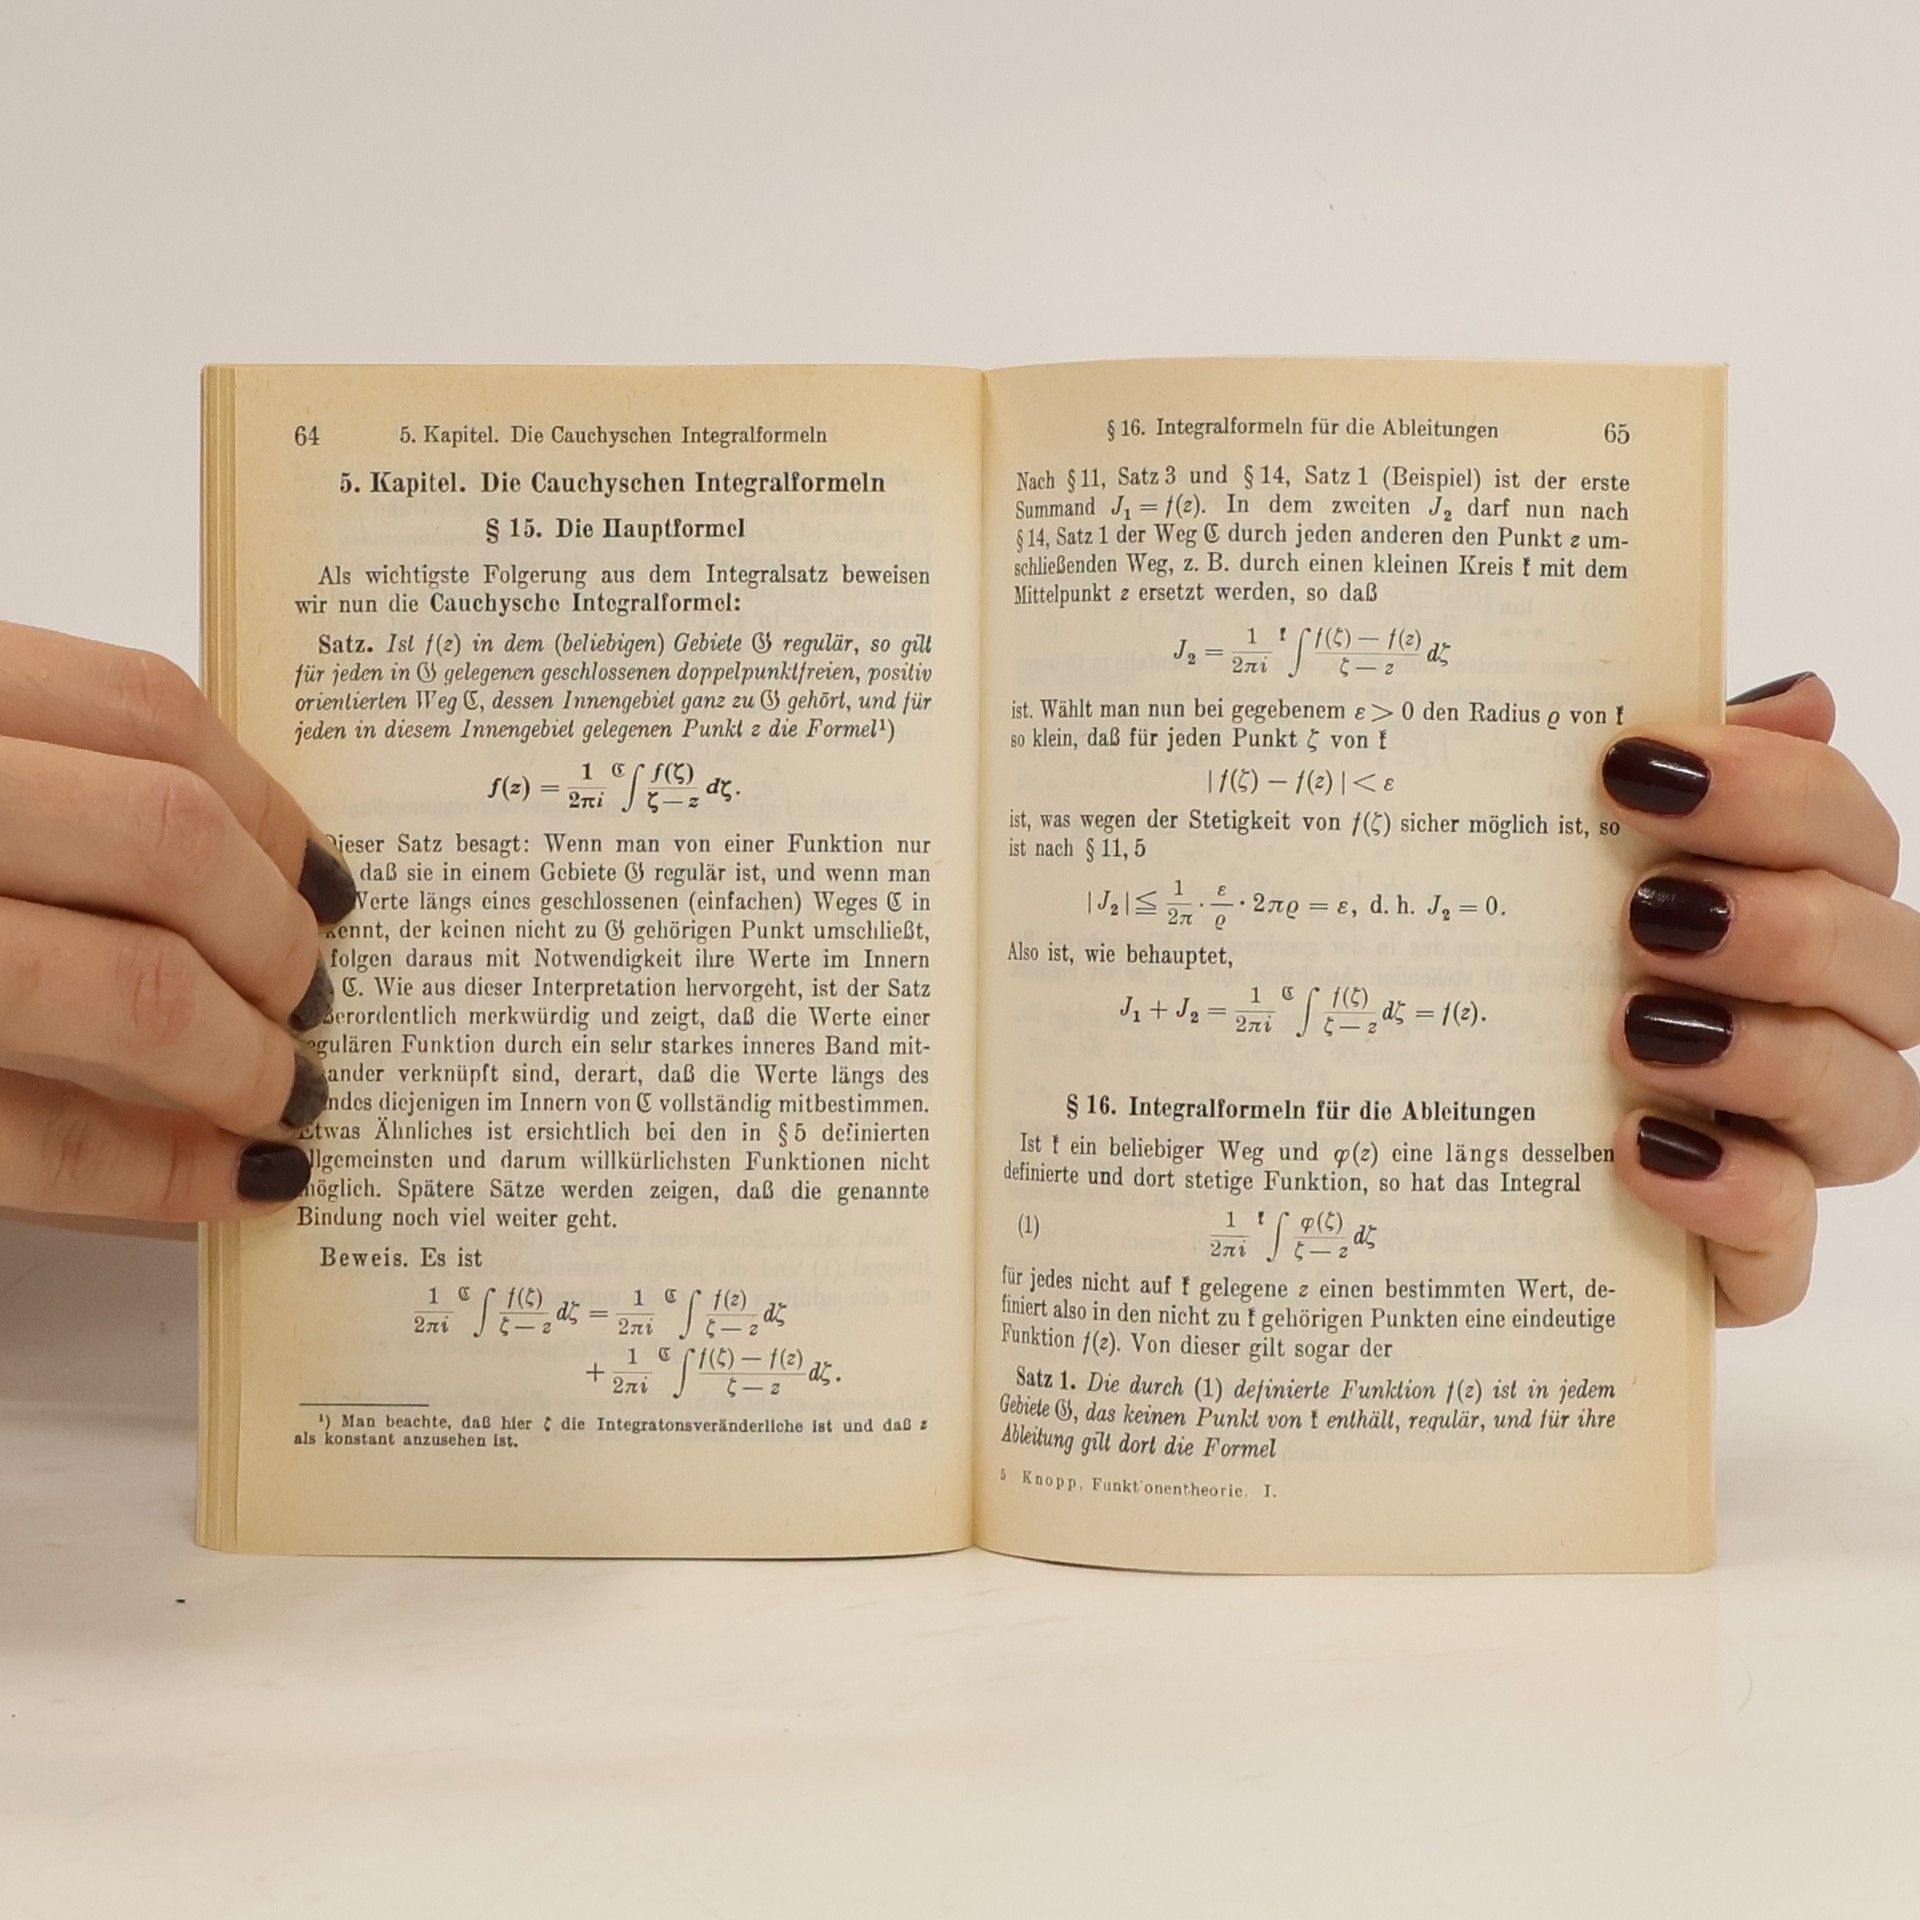 64 5. Kapitel. Die Cauchyschen Integralformeln
5. Kapitel. Die Cauchyschen Integralformeln
§ 15. Die Hauptformel
Als wichtigste Folgerung aus dem Integralsatz beweisen
wir nun die Cauchysche Integralformel:
Satz. Ist f(z) in dem (beliebigen) Gebiete 𝔊 regulär, so gilt
für jeden in 𝔊 gelegenen geschlossenen doppelpunktfreien, positiv
orientierten Weg ℭ, dessen Innengebiet ganz zu 𝔊 gehört, und für
jeden in diesem Innengebiet gelegenen Punkt z die Formel¹)
f(z) = 1/2πi ℭ∫ f(ζ)/(ζ — z) dζ.
Dieser Satz besagt: Wenn man von einer Funktion nur
daß sie in einem Gebiete 𝔊 regulär ist, und wenn man
Werte längs eines geschlossenen (einfachen) Weges ℭ in
kennt, der keinen nicht zu 𝔊 gehörigen Punkt umschließt,
folgen daraus mit Notwendigkeit ihre Werte im Innern
ℭ. Wie aus dieser Interpretation hervorgeht, ist der Satz
ßerordentlich merkwürdig und zeigt, daß die Werte einer
regulären Funktion durch ein sehr starkes inneres Band mit-
ander verknüpft sind, derart, daß die Werte längs des
ndes diejenigen im Innern von ℭ vollständig mitbestimmen.
Etwas Ähnliches ist ersichtlich bei den in § 5 definierten
allgemeinsten und darum willkürlichsten Funktionen nicht
möglich. Spätere Sätze werden zeigen, daß die genannte
Bindung noch viel weiter geht.
Beweis. Es ist
1/2πi ℭ∫ f(ζ)/(ζ — z) dζ = 1/2πi ℭ∫ f(z)/(ζ — z) dζ
+ 1/2πi ℭ∫ (f(ζ) — f(z))/(ζ — z) dζ.
¹) Man beachte, daß hier ζ die Integratonsveränderliche ist und daß z
als konstant anzusehen ist.
§ 16. Integralformeln für die Ableitungen 65
Nach § 11, Satz 3 und § 14, Satz 1 (Beispiel) ist der erste
Summand J₁ = f(z). In dem zweiten J₂ darf nun nach
§ 14, Satz 1 der Weg ℭ durch jeden anderen den Punkt z um-
schließenden Weg, z. B. durch einen kleinen Kreis 𝔨 mit dem
Mittelpunkt z ersetzt werden, so daß
J₂ = 1/2πi 𝔨∫ (f(ζ) — f(z))/(ζ — z) dζ
ist. Wählt man nun bei gegebenem ε > 0 den Radius ϱ von 𝔨
so klein, daß für jeden Punkt ζ von 𝔨
| f(ζ) — f(z) | < ε
ist, was wegen der Stetigkeit von f(ζ) sicher möglich ist, so
ist nach § 11, 5
| J₂ | ≦ 1/2π · ε/ϱ · 2πϱ = ε, d. h. J₂ = 0.
Also ist, wie behauptet,
J₁ + J₂ = 1/2πi ℭ∫ f(ζ)/(ζ — z) dζ = f(z).
§ 16. Integralformeln für die Ableitungen
Ist 𝔨 ein beliebiger Weg und φ(z) eine längs desselben
definierte und dort stetige Funktion, so hat das Integral
(1) 1/2πi 𝔨∫ φ(ζ)/(ζ — z) dζ
für jedes nicht auf 𝔨 gelegene z einen bestimmten Wert, de-
finiert also in den nicht zu 𝔨 gehörigen Punkten eine eindeutige
Funktion f(z). Von dieser gilt sogar der
Satz 1. Die durch (1) definierte Funktion f(z) ist in jedem
Gebiete 𝔊, das keinen Punkt von 𝔨 enthält, regulär, und für ihre
Ableitung gilt dort die Formel
5 Knopp, Funktionentheorie. I.